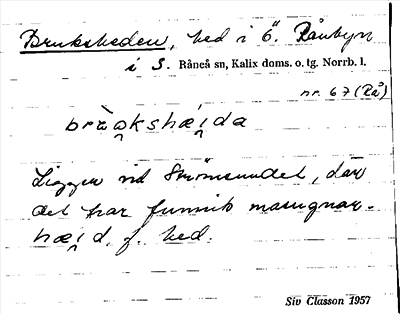 Brukheden, hed i ö. Rånbyn
i S. Råneå sn, Kalix doms. o. tg. Norrb. l.
nr. 67 (Rå)
Ligger vid Strömsundet, där
det har funnits masugnar.
hæi̯d, f. hed.
Siv Classon 1957